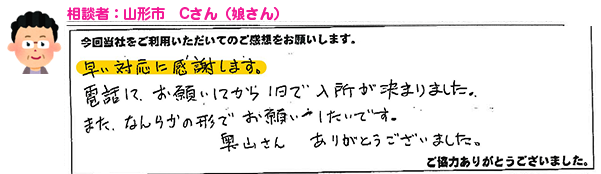 相談者：山形市　Cさん（娘さん）
今回当社をご利用いただいてのご感想をお願いします。
早い対応に感謝します。
電話にて、お願いしてから1日で入所が決まりました。
また、なんらかの形でお願いしたいです。
奥山さん　ありがとうございました。
ご協力ありがとうございました。